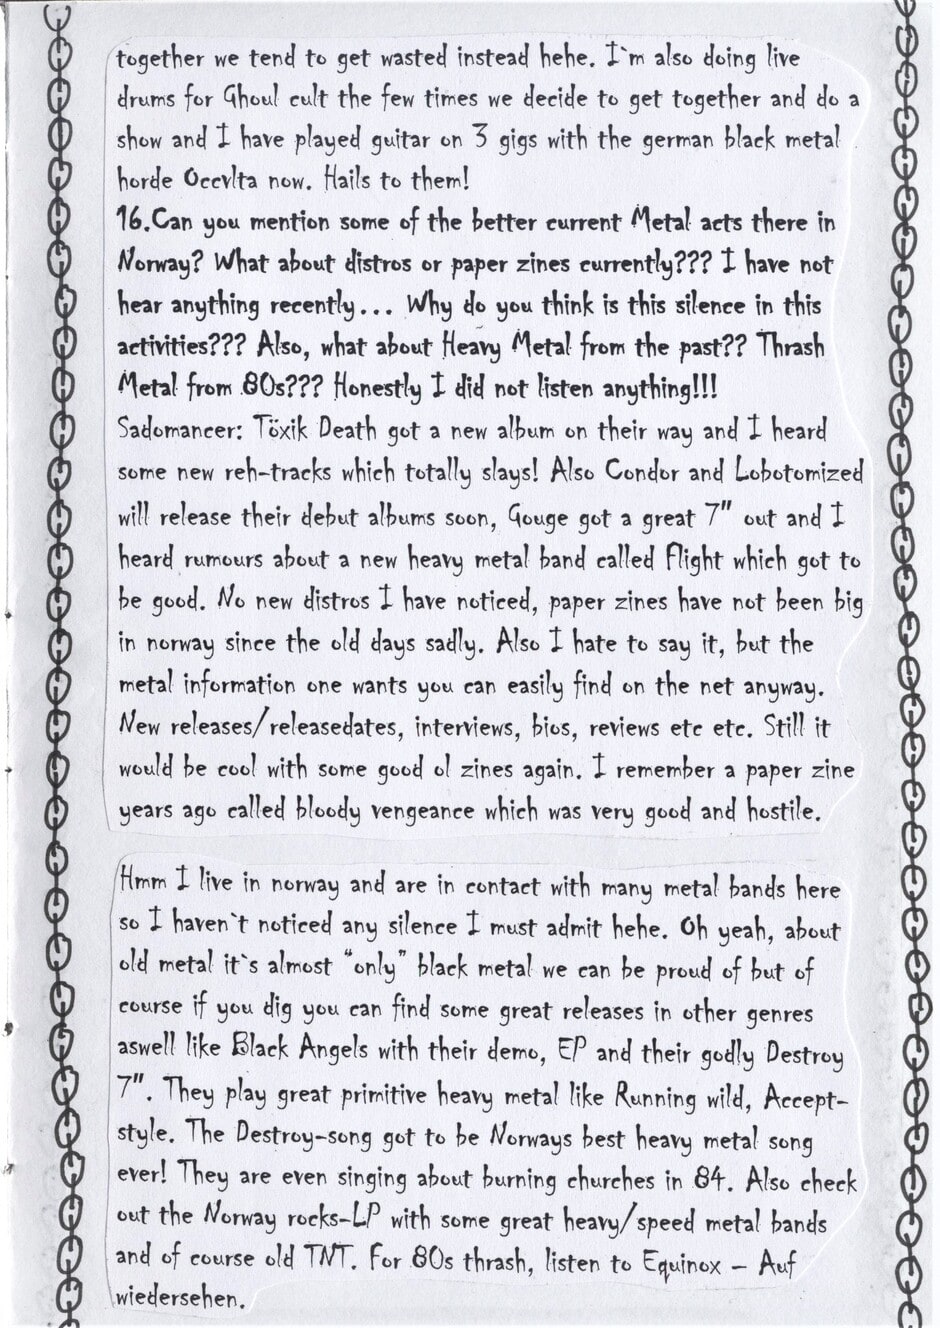 together we tend to get wasted instead hehe. I`m also doing live
drums for Ghoul cult the few times we decide to get together and do a
show and I have played guitar on 3 gigs with the german black metal
horde Occvlta now. Hails to them!
16.Can you mention some of the better current Metal acts there in
Norway? What about distros or paper zines currently??? I have not
hear anything recently... Why do you think is this silence in this
activities??? Also, what about Heavy Metal from the past?? Thrash
Metal from 80s??? Honestly I did not listen anything!!!
Sadomancer: Töxik Death got a new album on their way and I heard
some new reh-tracks which totally slays! Also Condor and Lobotomized
will release their debut albums soon, Gouge got a great 7" out and I
heard rumours about a new heavy metal band called Flight which got to
be good. No new distros I have noticed, paper zines have not been big
in norway since the old days sadly. Also I hate to say it, but the
metal information one wants you can easily find on the net anyway.
New releases/releasedates, interviews, bios, reviews etc etc. Still it
would be cool with some good ol zines again. I remember a paper zine
years ago called bloody vengeance which was very good and hostile.
Hmm I live in norway and are in contact with many metal bands here
so I haven`t noticed any silence I must admit hehe. Oh yeah, about
old metal it`s almost “only” black metal we can be proud of but of
course if you dig you can find some great releases in other genres
aswell like Black Angels with their demo, EP and their godly Destroy
7". They play great primitive heavy metal like Running wild, Accept-
style. The Destroy-song got to be Norways best heavy metal song
ever! They are even singing about burning churches in 84. Also check
out the Norway rocks-LP with some great heavy/speed metal bands
and of course old TNT. For 80s thrash, listen to Equinox – Auf
wiedersehen.